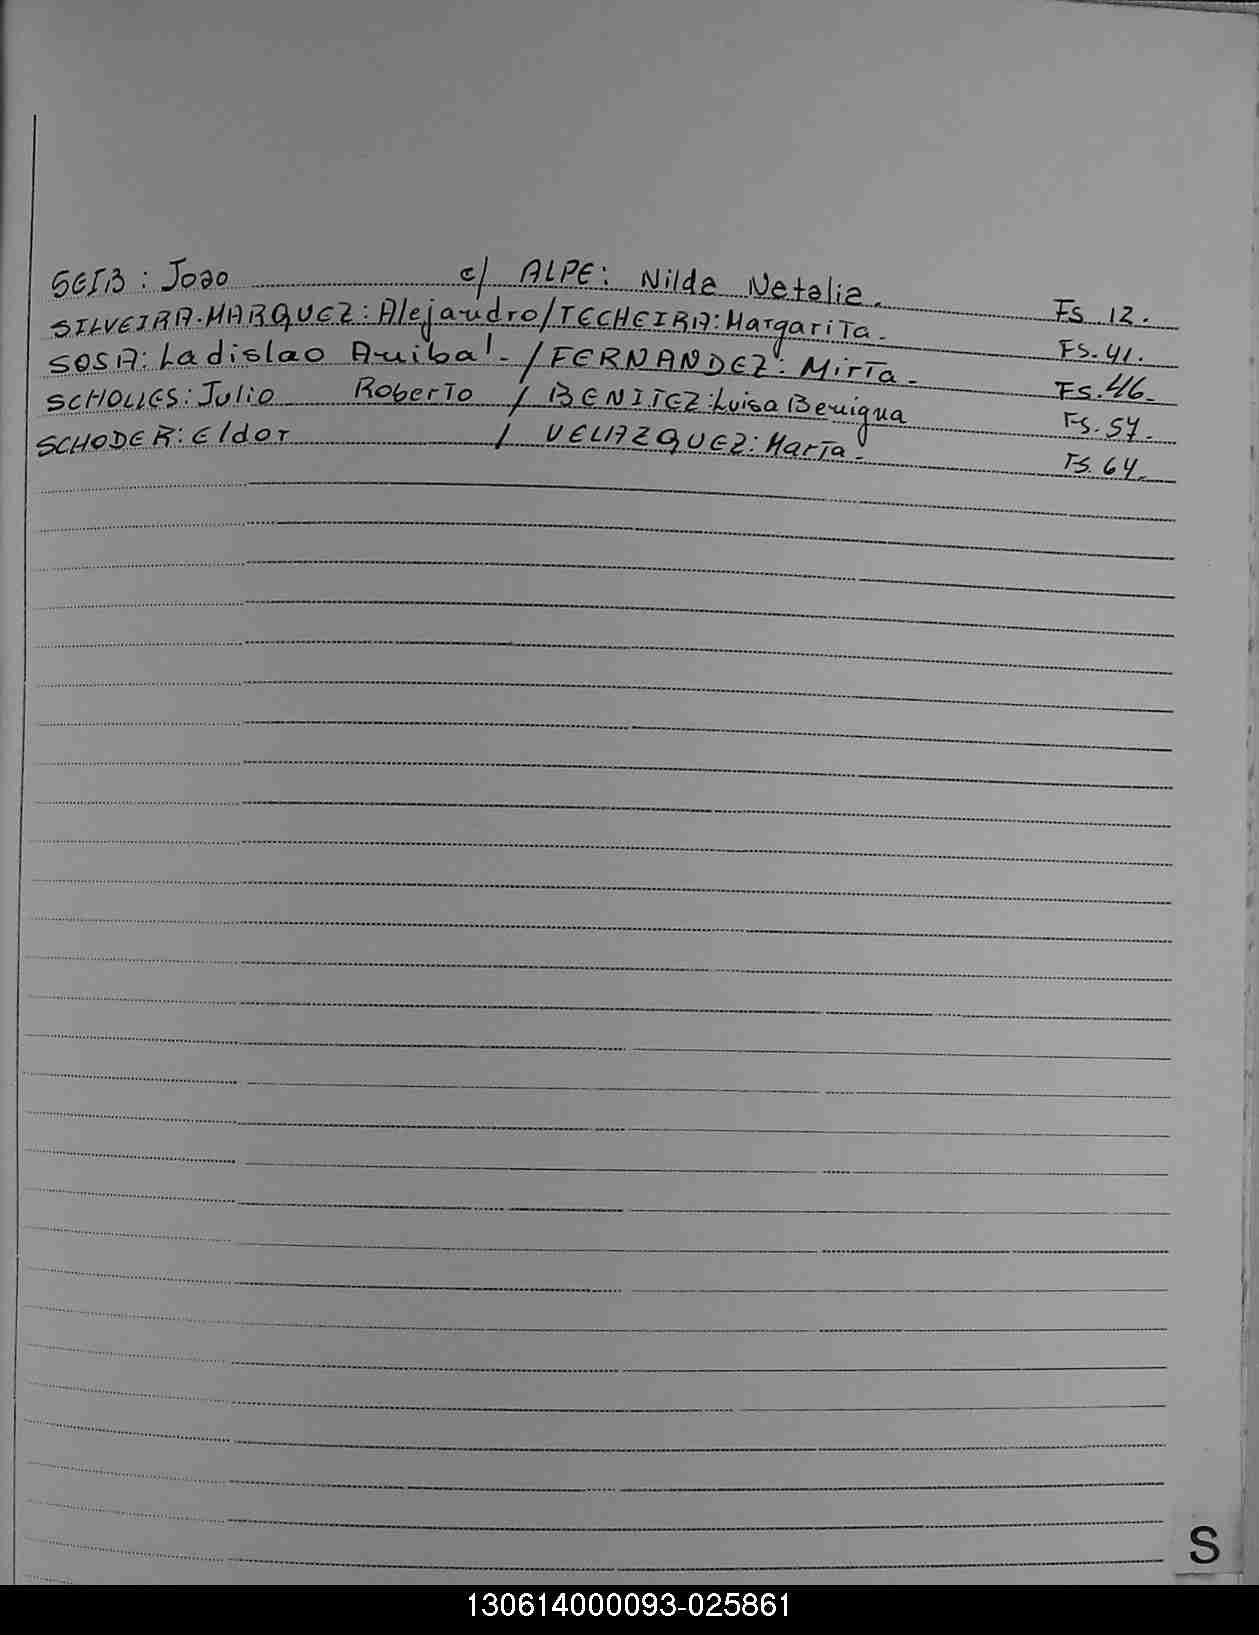 SEIB: Joao c/ ALPE: Nilda Natalia. Fs. 12.
SILVEIRA-MARQUEZ: Alejandro/TECHEIRA: Margarita. Fs. 41.
SOSA: Ladislao Anibal. / FERNANDEZ: Mirta. Fs. 46.
SCHOLLES: Julio Roberto / BENITEZ: Luisa Benigna Fs. 57.
SCHODER: Eldor / VELAZQUEZ: Marta. Fs. 64.
S
130614000093-025861